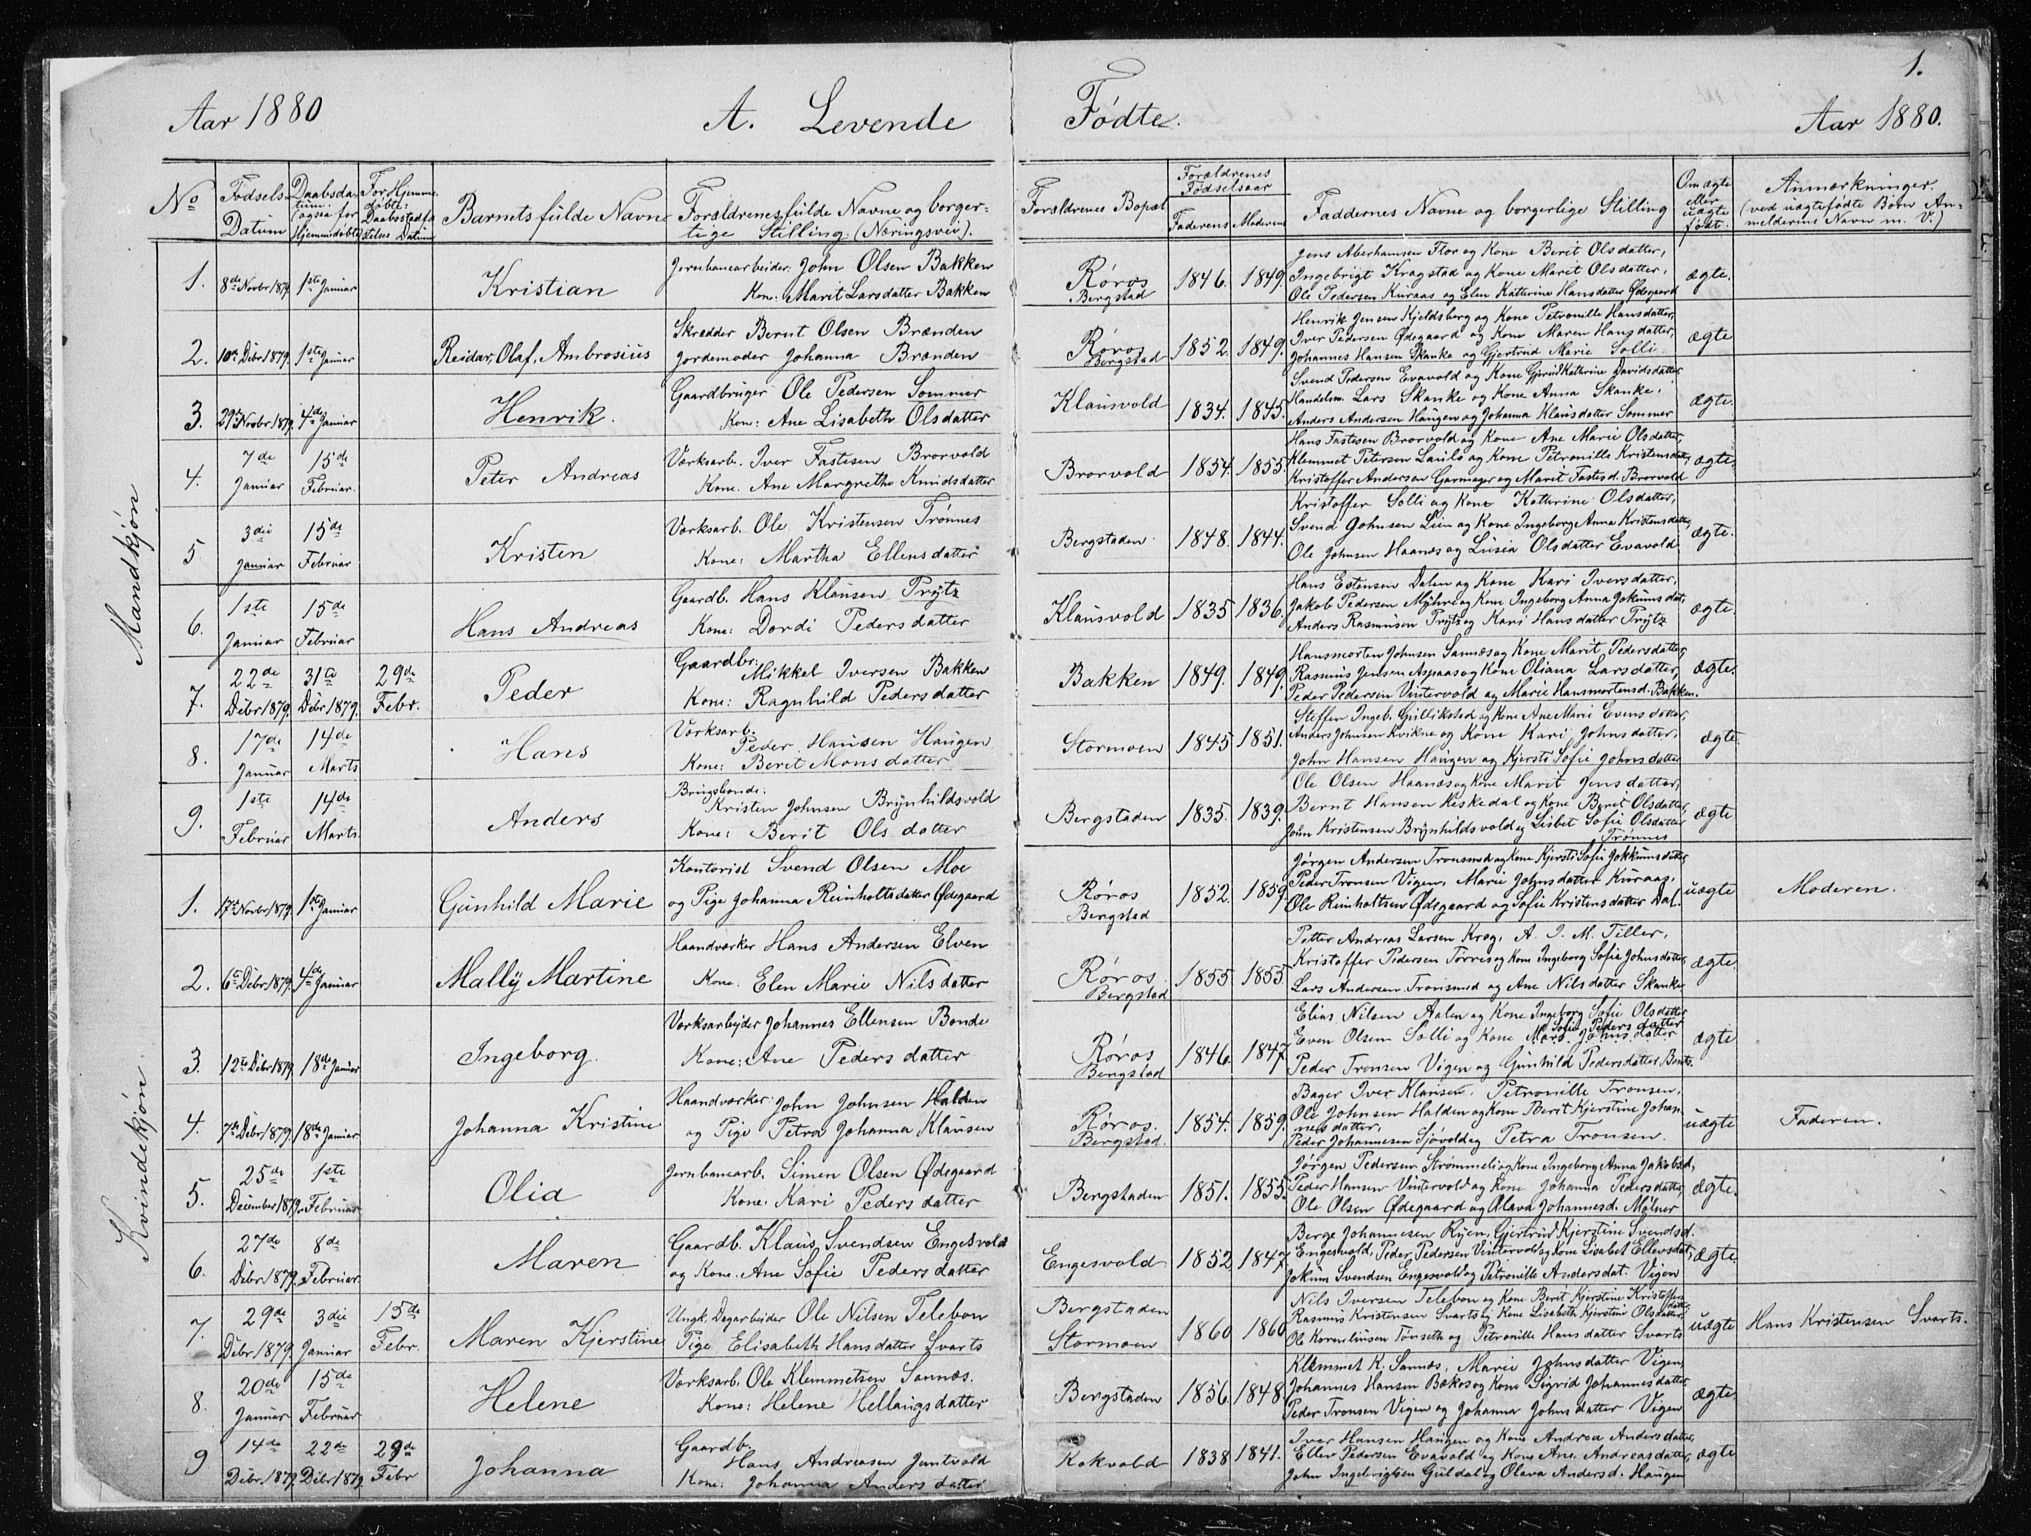 1.
Aar 1880
A. Levende
Fødte.
Aar 1880.
No
Fødsels Datum
Daabsdatum: (ogsaa for Hjemmedøbte)
For Hjemmedøbte: Daabsstadfæstelses Datum
Barnets fulde Navne
Forældrenes fulde Navne og borgerlige Stilling. (Næringsvei).
Forældrenes Bopæl
Forældrenes Fødselsaar
Faderens Moderens
Faddernes Navne og borgerlige Stilling
Om ægte eller uægte født.
Anmærkninger. (ved uægtefødte Børn Anmelderens Navn m. V.)
Mandkjøn
1. 8de Novbr 1879. 1ste Januar Kristian
Jernbanearbeider. John Olsen Bakken
Kone: Marit Larsdatter Bakken
Røros Bergstad 1846. 1849.
Jens Aberhamsen Flor og Kone Berit Olsdatter,
Ingebrigt Kragstad og Kone Marit Olsdatter.
Ole Pedersen Kuraas og Elen Kathrine Hansdatter Ødegaard
ægte.
2. 10de Debr. 1879. 1ste Januar Reidar, Olaf, Ambrosius
Skrædder Bernt Olsen Brænden
Jordemoder Johanna Brænden
Røros Bergstad 1852. 1849.
Henrik Jensen Kjeldsberg og Kone Petronille Hansdatter,
Iver Pedersen Ødegaard og Kone Maren Hansdatter,
Johannes Hansen Skanke og Gjertrud Marie Solli
ægte
3. 29de Novbr 1879. 4de Januar Henrik.
Gaardbruger Ole Pedersen Sommer
Kone: Ane Lisabeth Olsdatter
Klausvold 1834. 1845.
Svend Pedersen Evavold og Kone Gjertrud Kathrine Davidsdatter,
Handelsm. Lars Skanke og Kone Anna Skanke.
Anders Andersen Haugen og Johanna Klausdatter Sommer
ægte.
4. 7de Januar 15de Februar. Peter Andreas
Værksarb. Iver Fastesen Brorvold
Kone. Ane Margrethe Knudsdatter
Brorvold 1854. 1855.
Hans Fastesen Brorvold og Kone Ane Marie Olsdatter,
Klemmet Petersen Lauils og Kone Petronille Kristensdat,
Kristoffer Andersen Garmager og Marit Fastesd. Brorvold
ægte.
5 3die Januar 15de Februar Kristen
Værksarb. Ole Kristensen Trønnes
Kone: Martha Ellensdatter
Bergstaden 1848. 1844.
Kristoffer Solli og Kone Kathrine Olsdatter,
Svend Johnsen Lien og Kone Ingeborg Anna Kristensdatter
Ole Johnsen Haanæs og Lusia Olsdatter Evavold
ægte.
6. 1ste Januar 15de Februar Hans Andreas
Gaardb. Hans Klausen Prytz
Kone: Dordi Pedersdatter
Klausvold 1835 1836.
Hans Estensen Dalen og Kone Kari Iversdatter,
Jakob Pedersen Myhre og Kone Ingeborg Anna Jokumsdat.
Anders Rasmusen Prytz og Kari Hansdatter Prytz
ægte.
7. 22de Debr 1879. 31te Debr 1879. 29de Febr. Peder
Gaardbr. Mikkel Iversen Bakken
Kone: Ragnhild Pedersdatter
Bakken 1849. 1849.
Hansmorten Johnsen Sannæs og Kone Marit Pedersdatter,
Rasmus Jensen Aspaas og Kone Oliana Larsdatter,
Peder Pedersen Vintervold og Marie Hansmortensd. Bakken.
ægte.
8. 17de Januar 14de Marts Hans
Værksarb. Peder Hansen Haugen
Kone: Beret Monsdatter
Stormoen 1845 1851.
Steffen Ingeb. Gullikstad og Kone Ane Marie Evensdatter,
Anders Johnsen Kvikne og Kone Kari Johnsdatter,
John Hansen Haugen og Kjersti Sofie Johnsdatter
ægte.
9. 1ste Februar 14de Marts. Anders
Brugsbonde. Kristen Johnsen Brynhildsvold
Kone: Berit Olsdatter
Bergstaden 1835. 1839.
Ole Olsen Haanæs og Kone Marit Jensdatter,
Bernt Hansen Keskedal og Kone Beret Olsdatter,
John Kristensen Brynhildsvold og Lisbet Sofie Olsdatter Trønnes
ægte
Kvindekjøn.
1. 17de Novbr 1879. 1ste Januar Gunhild Marie
Kontorist Svend Olsen Moe
og Pige Johanna Reinholtsdatter Ødegaard
Røros Bergstad 1852. 1859.
Jørgen Andersen Tronsmed og Kone Kjersti Sofie Jokkumsdatter,
Peder Tronsen Vigen, Marie Johnsdatter Kuraas,
Ole Reinholtsen Ødegaard og Sofie Kristensdatter Dal.
uægte Moderen.
2. 6te Debr. 1879. 4de Januar Mally Martine
Haandværker Hans Andersen Elven
Kone. Elen Marie Nilsdatter
Røros Bergstad 1855 1855
Petter Andreas Larsen Krog, A. J. M. Tiller,
Kristoffer Pedersen Torres og Kone Ingeborg Sofie Johnsdatter,
Lars Andersen Tronsmed og Ane Nilsdatter Skanke
ægte.
3. 12te Debr 1879. 18de Januar Ingeborg.
Værksarbejder Johannes Ellensen Bonde
Kone: Ane Pedersdatter
Røros Bergstad 1846. 1847
Elias Nilsen Aalen og Kone Ingeborg Sofie Olsdatter
Even Olsen Solli og Kone Sofie Pedersdatter
Peder Tronsen Vigen og Gunhild Pedersdatter Bonde.
ægte
4. 7de Debr 1879. 18de Januar Johanna Kristine
Haandværker John Johnsen Halden
og Pige Petra Johanna Klausen
Røros. Bergstad. 1854. 1859.
Bager Iver Klausen. Petronille Tronsen,
Ole Johnsen Halden og Kone Berit Kjerstine Johannesdatter,
Peder Johannesen Sjøvold og Petra Tronsen.
uægte Faderen.
5. 25de December 1879. 1ste Februar Olia
Jernbanearb. Simen Olsen Ødegaard
Kone. Kari Pedersdatter
Bergstaden 1851. 1855.
Jørgen Pedersen Strømmeli og Kone Ingeborg Anna Jakobsd,
Peder Hansen Vintervold og Kone Johanna Pedersdatter,
Ole Olsen Ødegaard og Olava Johannesd. Mølner
ægte.
6. 27de Debr 1879. 8de Februar Maren
Gaardb. Klaus Svendsen Engesvold
og Kone. Ane Sofie Pedersdatter
Engesvold 1852 1847
Berge Johannesen Ryen, Gjertrud Kjerstine Svendsd.
Engesvold, Peder Pedersen Vintervold og Kone Lisabet Ellevsdat,
Jokum Svendsen Engesvold og Petronille Andersdat. Vigen
ægte.
7. 29de Debr 1879. 3die Januar 15de Febr. Maren Kjerstine
Ungk. Dagarbeider Ole Nilsen Telebon
Pige Elisabeth Hansdatter Svarts
Bergstaden Stormoen 1860 1860
Nils Iversen Telebon og Kone Beret Kjerstine Kristoffersdatter,
Rasmus Kristensen Svarts og Kone Lisabeth Kjerstine Olsdatter,
Ole Korneliusen Tunseth og Petronille Hansdatter Svarts
uægte Hans Kristensen Svarts.
8. 20de Januar 15de Februar Helene
Værksarb. Ole Klemmetsen Sannæs.
Kone: Helene Hellingsdatter
Bergstaden 1856 1848.
Klemmet K. Sannæs, Marie Johnsdatter Vigen,
Johannes Hansen Bækos og Kone Sigrid Johannesdatter
Peder Tronsen Vigen og Johanna Johnsdatter Vigen
ægte.
9 14de Debr. 1879. 22de Debr. 1879 29de Febr Johanna
Gaardb. Hans Andreasen Jamtvold
Kone: Johanna Andersdatter.
Kokvold 1838 1841.
Iver Hansen Haugen og Kone Andrea Andersdatter,
Ellev Pedersen Evavold og Kone Ane Andreasdatter,
John Ingebrigtsen Guldal og Olava Andersd. Haugen
ægte